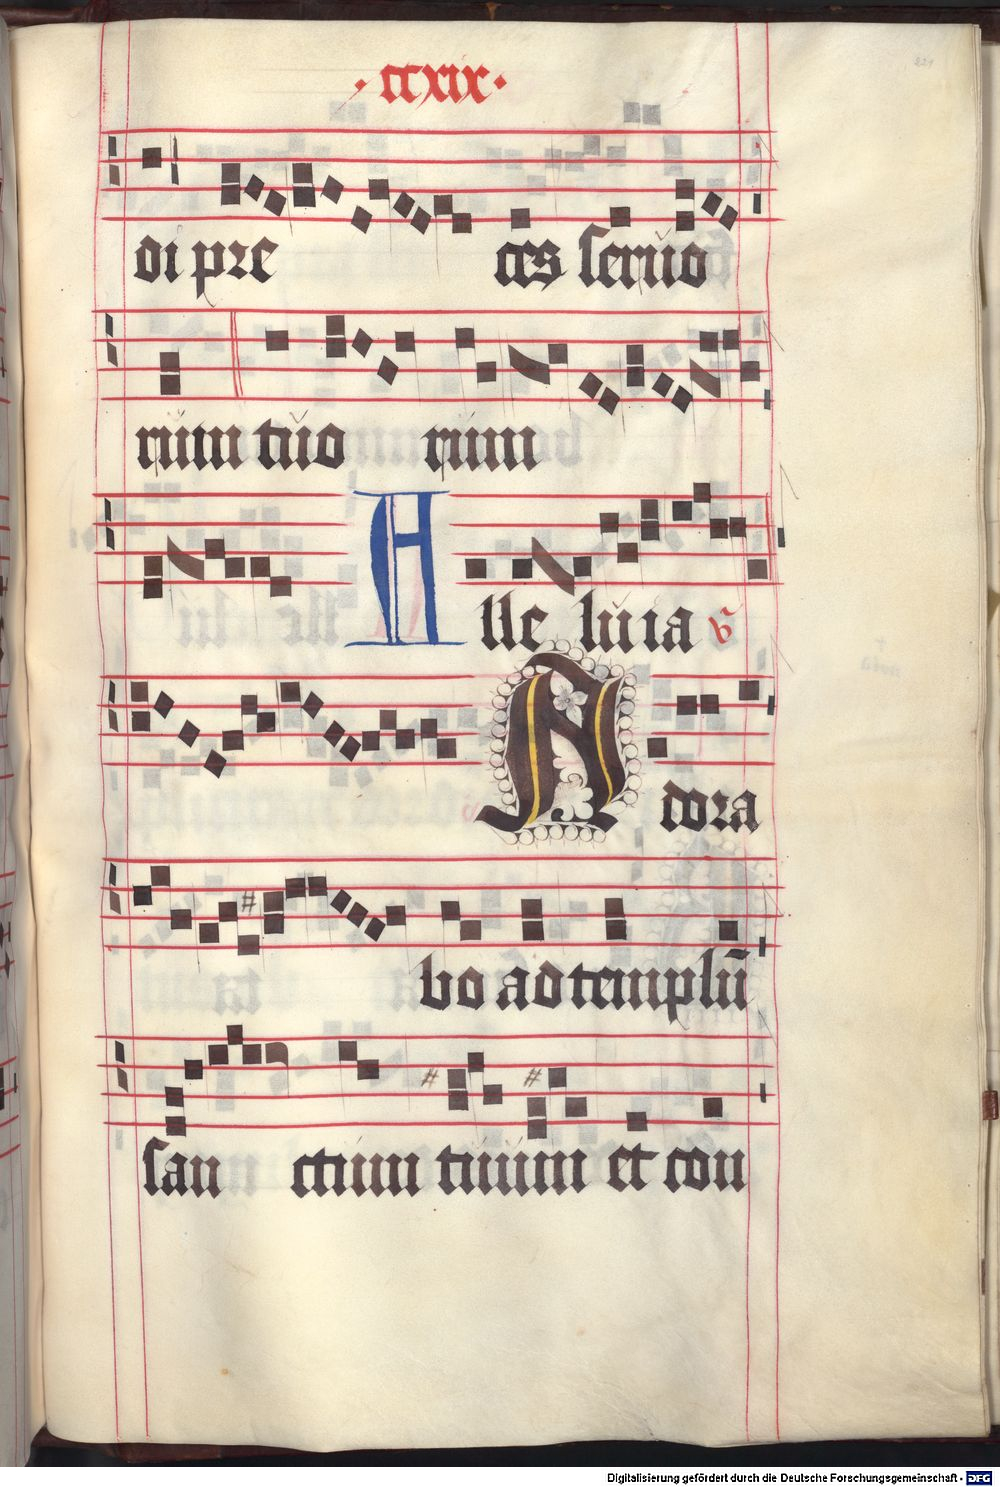 · ccxix ·
di pre ces seruo
rum tuo rum
Alle luia ℣
Adora
bo ad templū
san ctum tuum et con
Digitalisierung gefördert durch die Deutsche Forschungsgemeinschaft - DFG